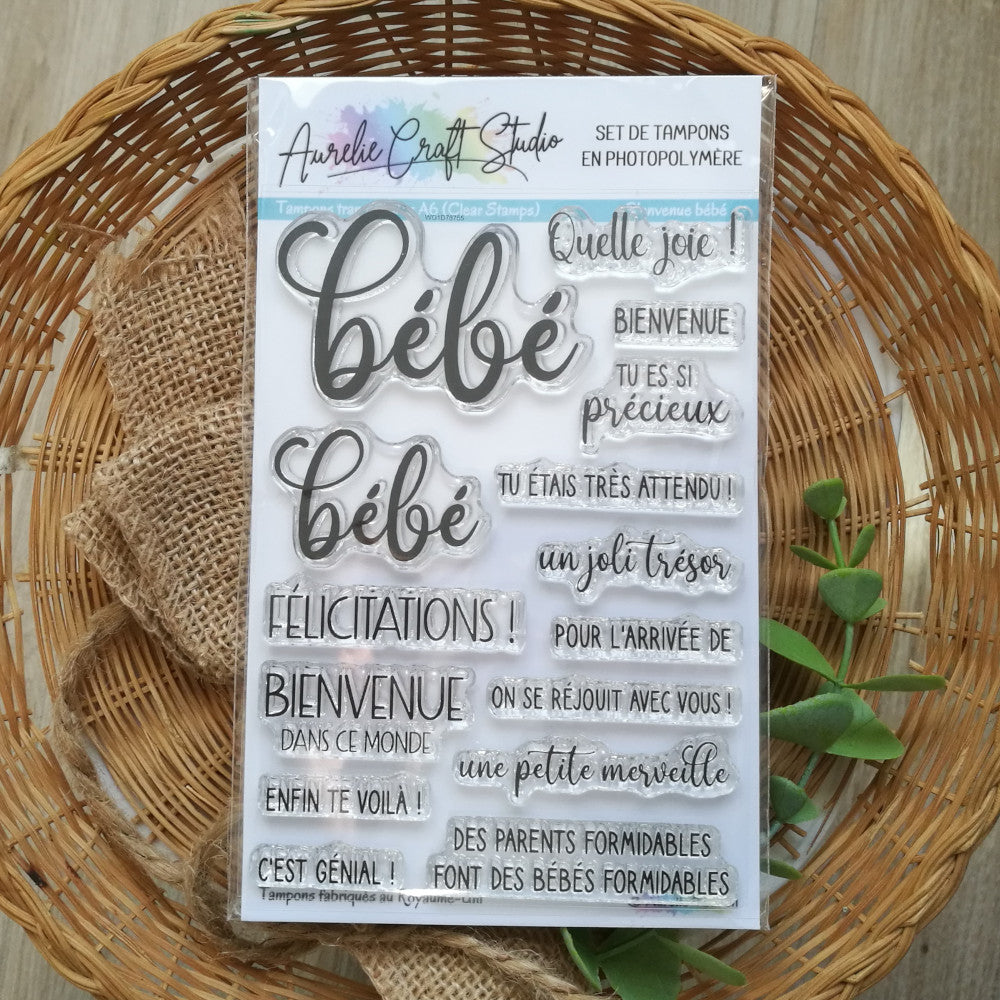 Aurelie Craft Studio
SET DE TAMPONS
EN PHOTOPOLYMÈRE
A6 (Clear Stamps)
Bienvenue bébé
bébé
Quelle joie !
BIENVENUE
TU ES SI
précieux
bébé
TU ÉTAIS TRÈS ATTENDU !
un joli trésor
FÉLICITATIONS !
POUR L'ARRIVÉE DE
BIENVENUE
DANS CE MONDE
ON SE RÉJOUIT AVEC VOUS !
une petite merveille
ENFIN TE VOILÀ !
DES PARENTS FORMIDABLES
FONT DES BÉBÉS FORMIDABLES
C'EST GÉNIAL !
Tampons fabriqués au Royaume-Uni